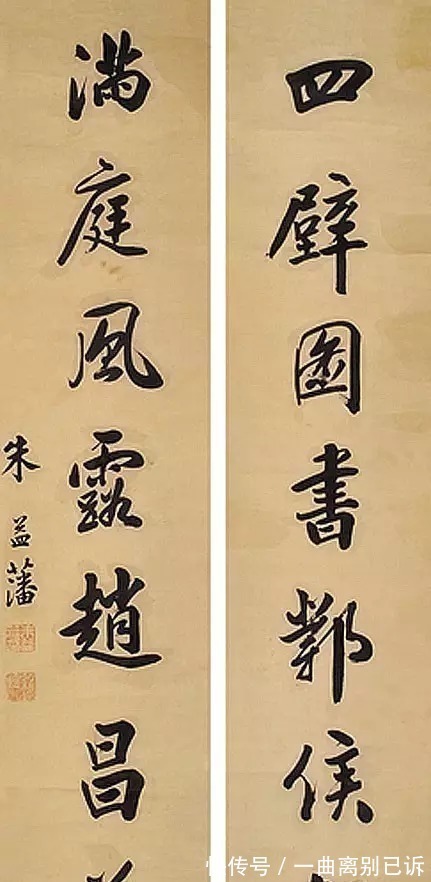 四壁圖書鄴侯
滿庭風露趙昌
朱益藩
快传号 / 一曲离别已诉